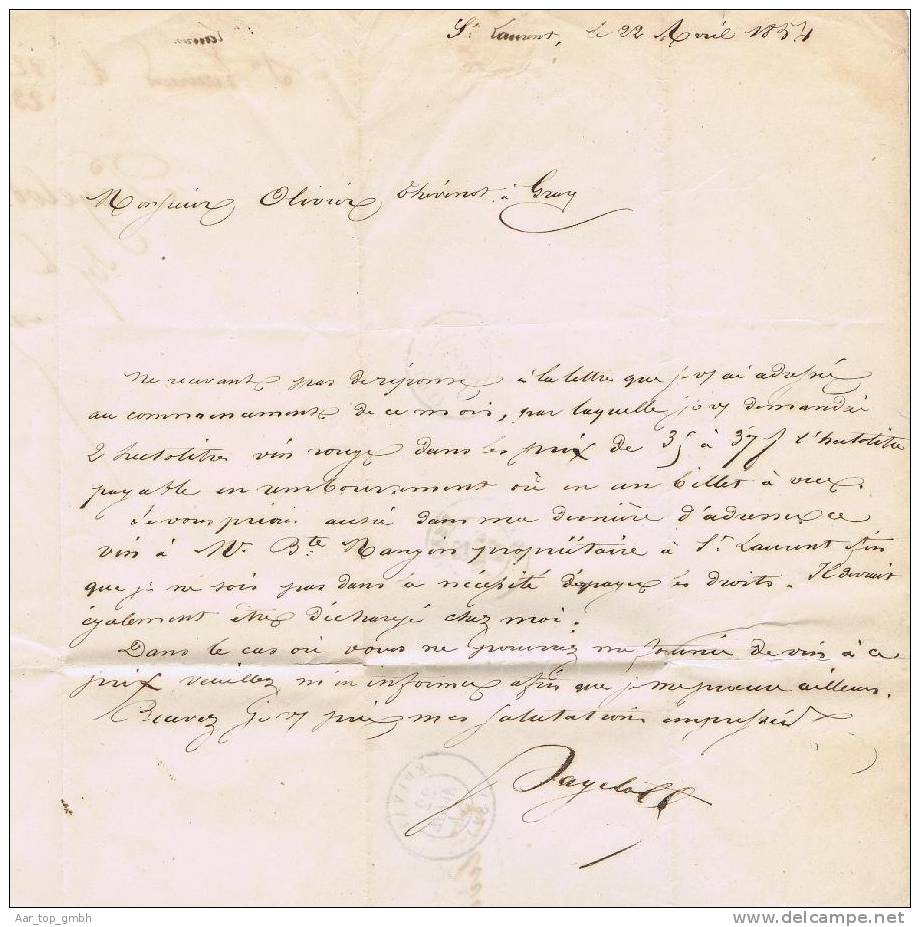 St Laurent, le 22 Avril 1854
Monsieur Olivier Thévenot à Gray
Ne recevant pas de réponse à la lettre que je vs ai adressée
au commencement de ce mois, par laquelle je vs demandai
2 hectolitres vin rouge dans les prix de 35 à 37 f l'hectolitre
payable en remboursement où en un billet à vue.
Je vous priai aussi dans ma dernière d'adresser ce
vin à Mr Bte Mangin propriétaire à St Laurent afin
que je ne sois pas dans la nécessité de payer les droits. Il devrait
également être déchargé chez moi.
Dans le cas où vous ne pourriez me fournir de vin à ce
prix veuillez m'en informer afin que je me pourvoie ailleurs.
Recevez je vs prie mes salutations empressées
Aar_top_gmbh
www.delcampe.net